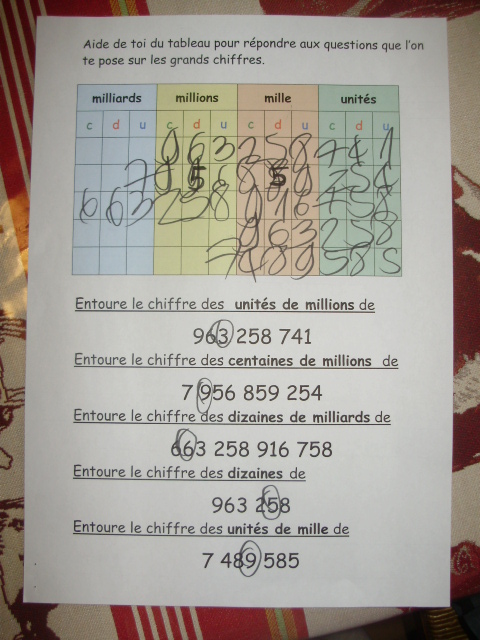 Aide de toi du tableau pour répondre aux questions que l'on
te pose sur les grands chiffres.
milliards millions mille unités
c d u c d u c d u c d u
9 6 3 2 5 8 7 4 1
7 9 5 6 8 5 9 2 5 4
6 6 3 2 5 8 9 1 6 7 5 8
9 6 3 2 5 8
7 4 8 9 5 8 5
Entoure le chiffre des unités de millions de
963 258 741
Entoure le chiffre des centaines de millions de
7 956 859 254
Entoure le chiffre des dizaines de milliards de
663 258 916 758
Entoure le chiffre des dizaines de
963 258
Entoure le chiffre des unités de mille de
7 489 585